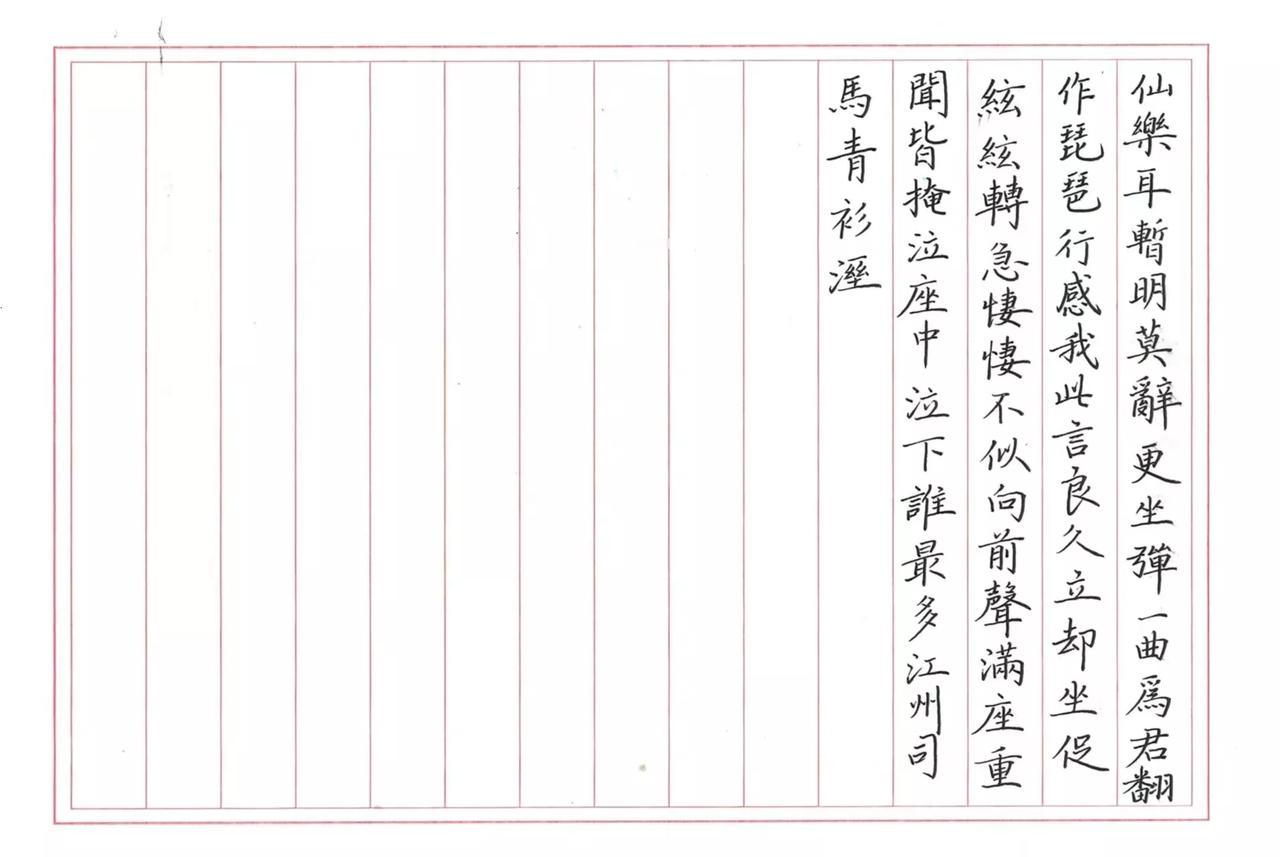 仙樂耳暫明莫辭更坐彈一曲爲君翻
作琵琶行感我此言良久立却坐促
絃絃轉急悽悽不似向前聲滿座重
聞皆掩泣座中泣下誰最多江州司
馬青衫溼